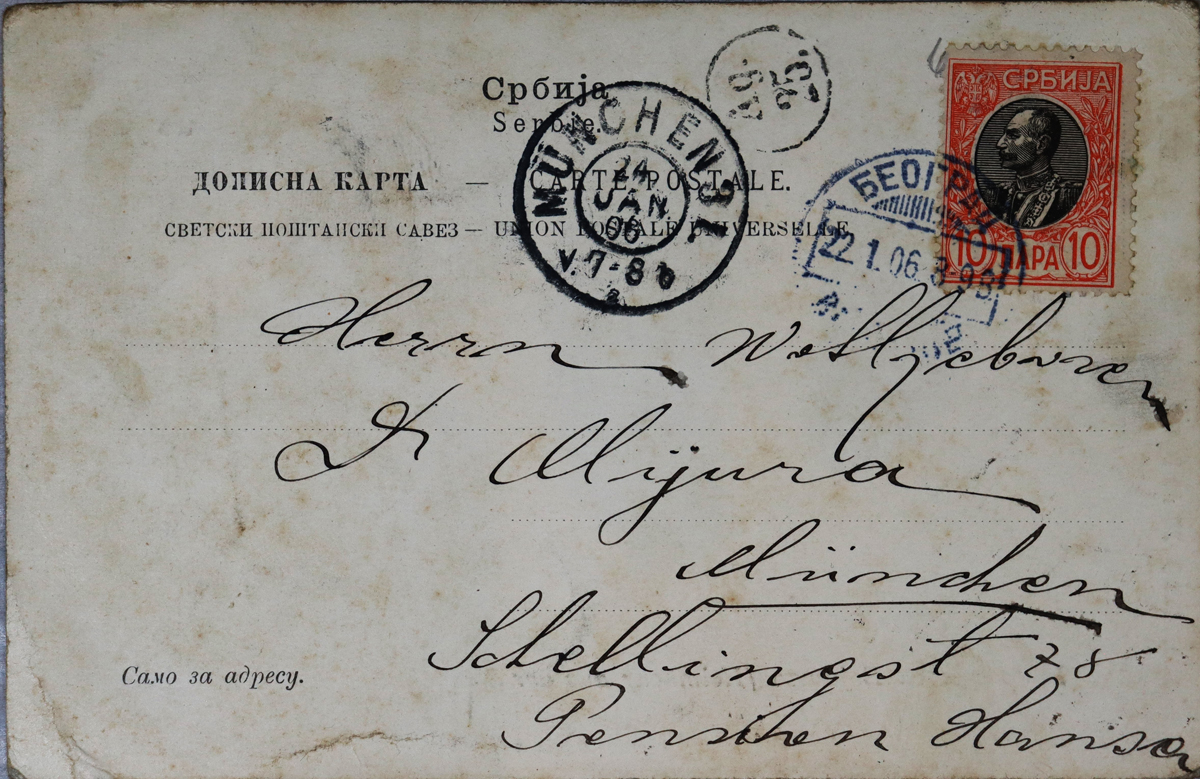 Србија
Serbie.
ДОПИСНА КАРТА — CARTE POSTALE.
СВЕТСКИ ПОШТАНСКИ САВЕЗ — UNION POSTALE UNIVERSELLE
СРБИЈА
10 ПАРА 10
MÜNCHEN 31
24
JAN
06
V.7-8
БЕОГРАД
22.1.06.
25.
Herrn Wollgeboren
Dr Mijura
München
Schellingst 78
Pension Hansa
Само за адресу.